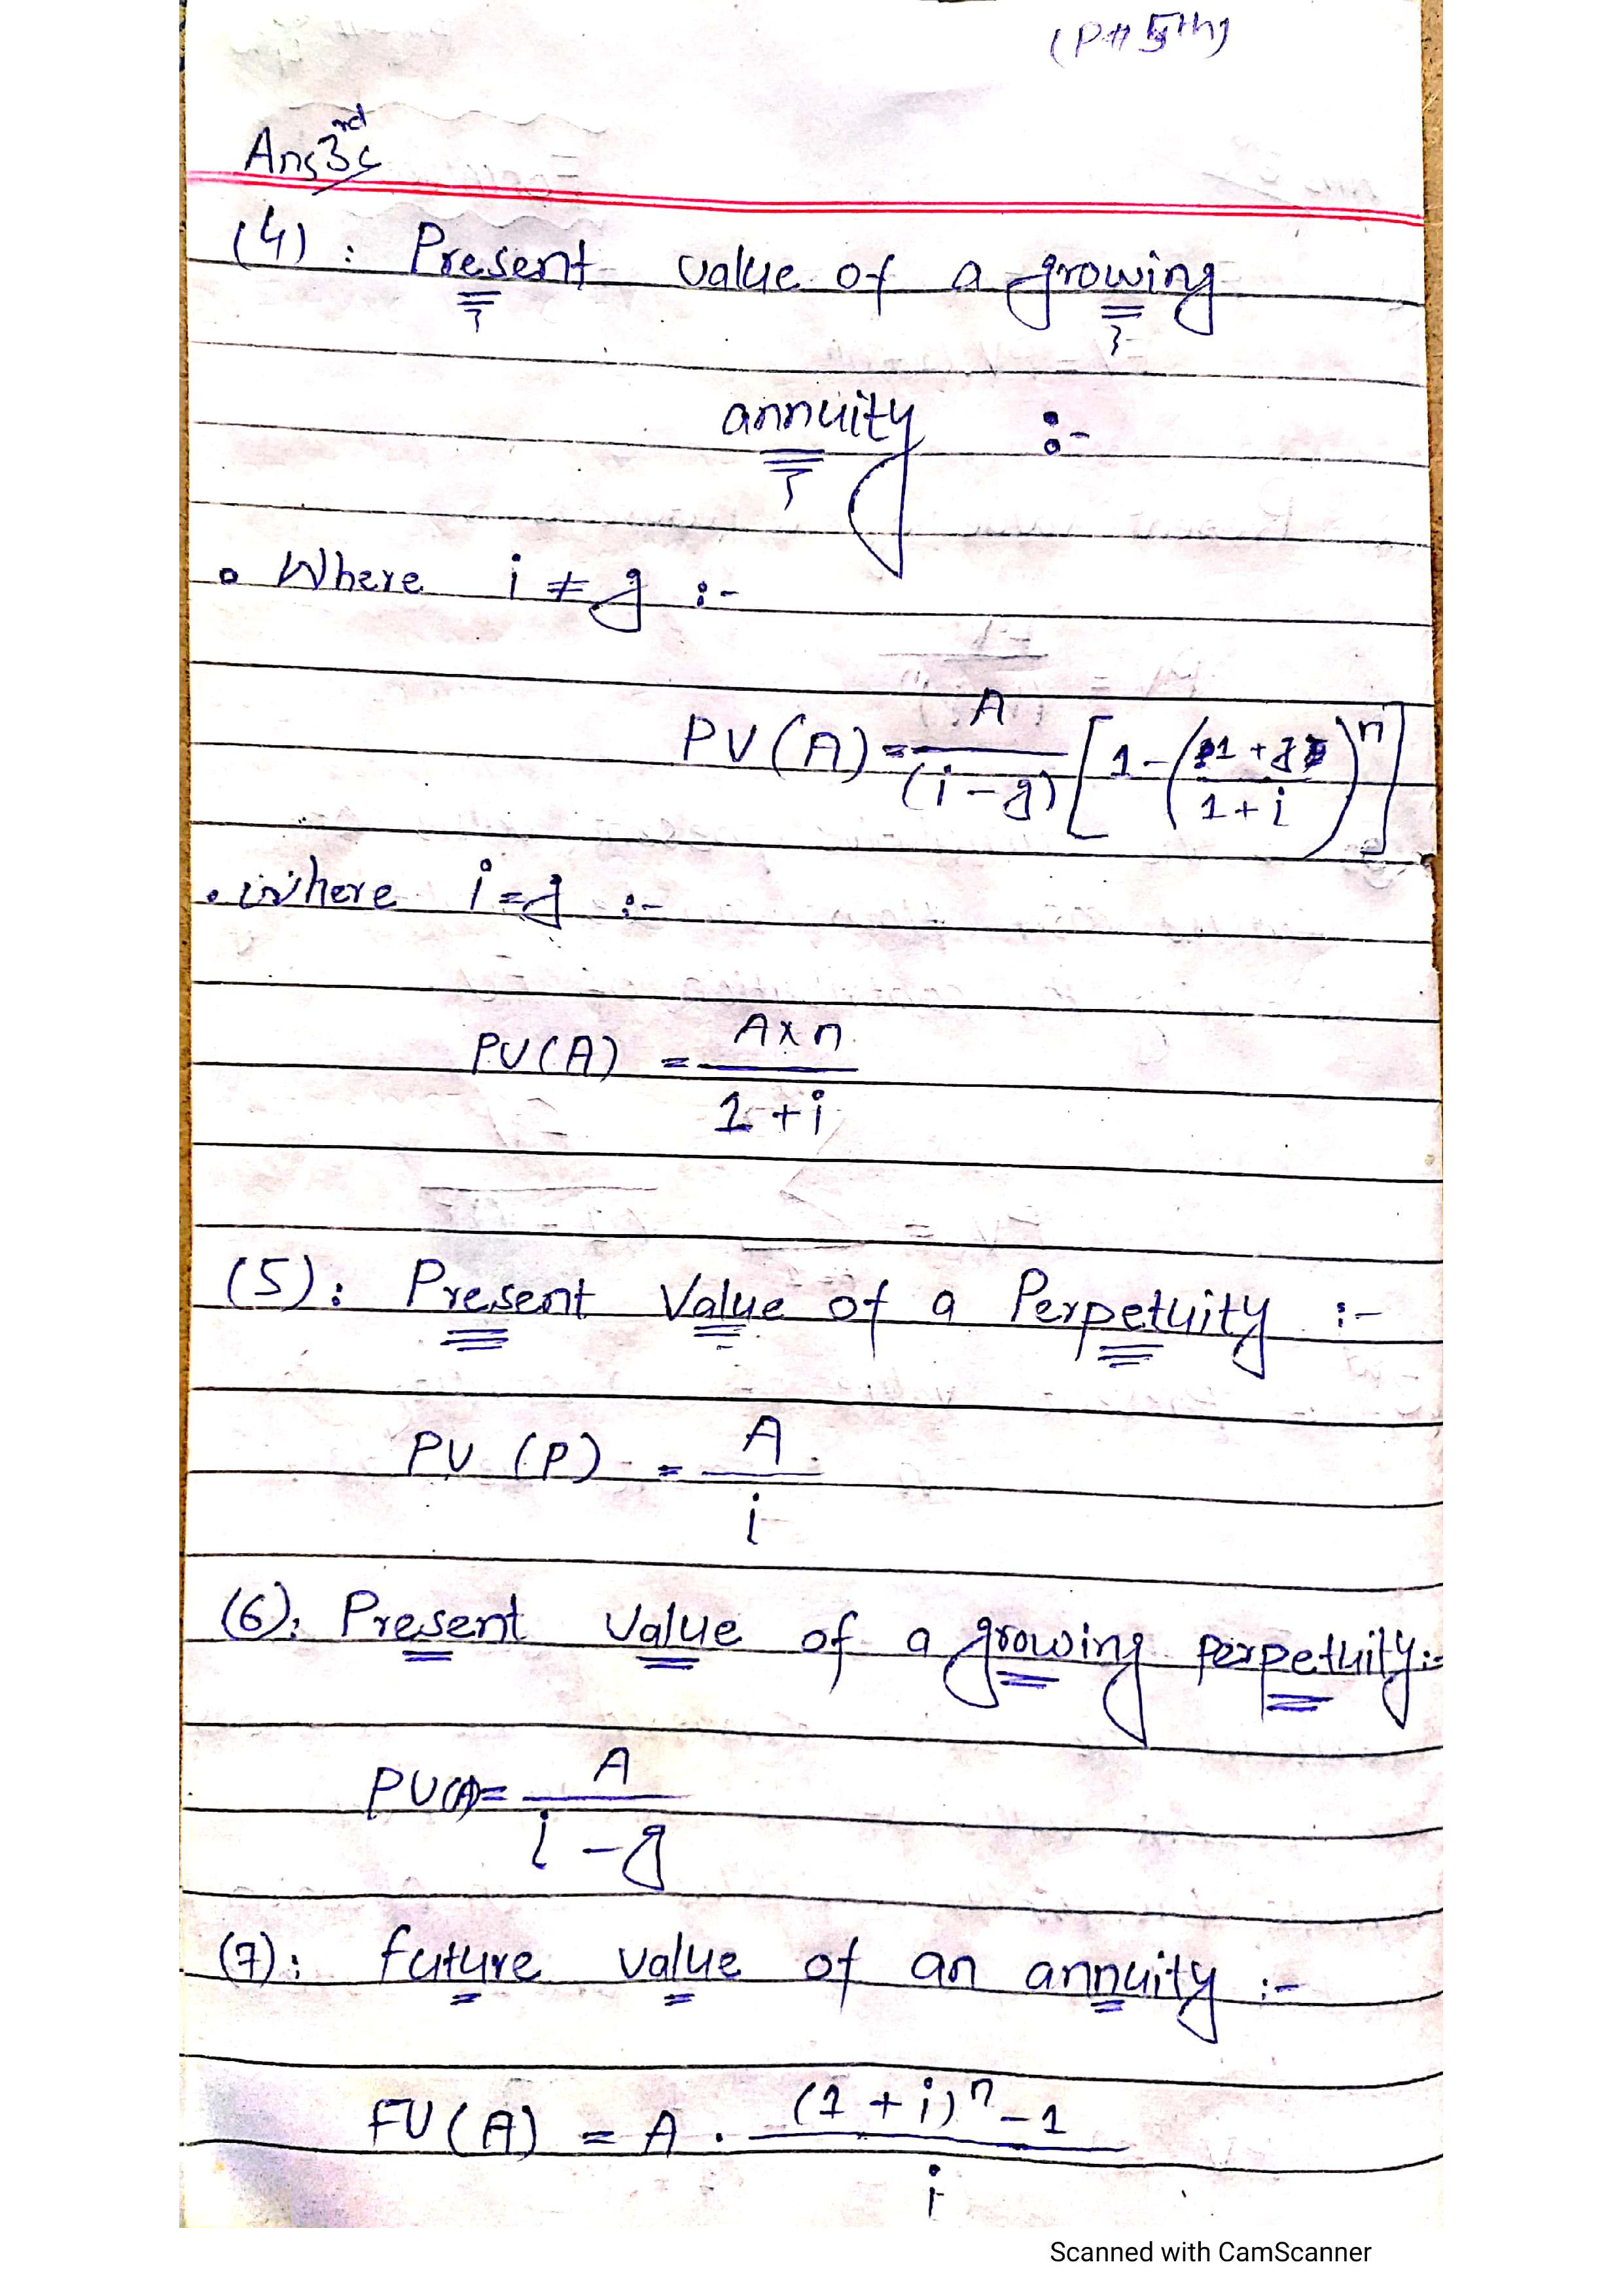 (P# 5th)
Ans 3rd
(4) : Present value of a growing
annuity :-
• Where i ≠ g :-
PV(A) = A/(i-g) [1-(1+g/1+i)^n]
• where i = g :-
PV(A) = A×n/1+i
(5) : Present Value of a Perpetuity :-
PV (P) = A/i
(6) : Present Value of a growing perpetuity :-
PV(A) = A/i-g
(7) : future value of an annuity :-
FV(A) = A . (1+i)^n-1/i
Scanned with CamScanner